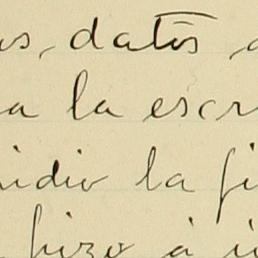 os, datos
a la escr
idio la fi
hizo á